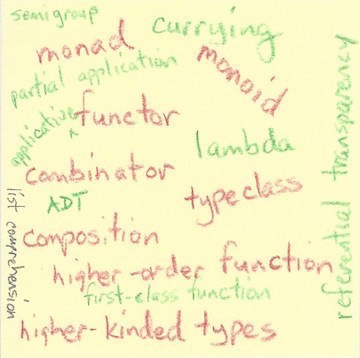 semigroup
currying
monad
monoid
partial application
applicative
functor
lambda
combinator
typeclass
ADT
composition
higher-order function
first-class function
higher-kinded types
list comprehension
referential transparency